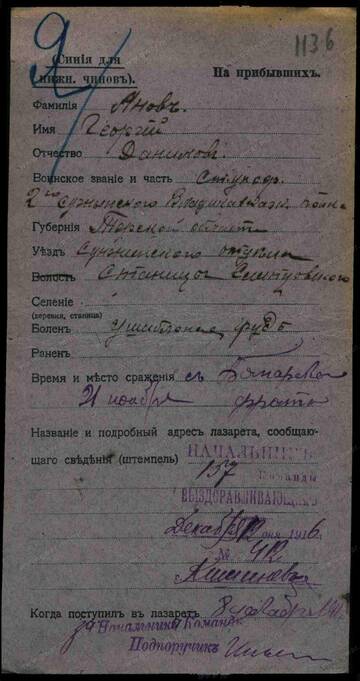 1136
2
(Синія для
нижн. чиновъ).
На прибывшихъ.
Фамилія Яновъ.
Имя Георгій
Отчество Данилов.
Воинское званіе и часть
2го Сунженского Владикавказк.
Губернія Терской области
Уѣздъ Сунженского отдѣла
Волость Станицы
Селеніе
(деревня, станица)
Боленъ
Раненъ
Время и мѣсто сраженія съ
21 ноября
Названіе и подробный адресъ лазарета, сообщаю-
щаго свѣдѣнія (штемпель) НАЧАЛЬНИКЪ
157 Команды
ВЫЗДОРАВЛИВАЮЩИХЪ
Декабря дня 1916
№ 42
Кишиневъ
Когда поступилъ въ лазаретъ 8 декабря
За Начальника Команды
Подпоручикъ